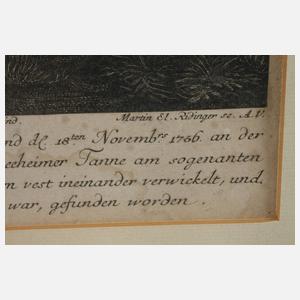 ind. Martin El. Ridinger sc. A.V.
nd d. 18ten Novembrs 1756. an der
eeheimer Tanne am sogenanten
n vest ineinander verwickelt, und
war, gefunden worden.